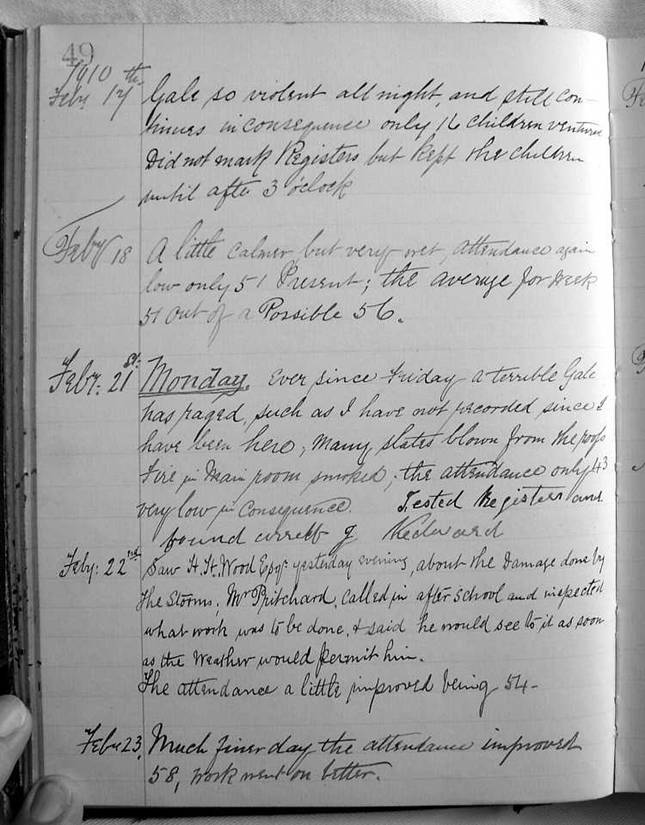 49
1910
Feby 17th Gale so violent all night, and still con-
tinues in consequence only 16 children venture
Did not mark Registers but kept the children
until after 3 o'clock
Feby 18 A little calmer but very wet, attendance again
low only 51 Present; the average for week
51 out of a Possible 56.
Feby. 21st. Monday. Ever since Friday a terrible Gale
has raged, such as I have not recorded since I
have been here, many slates blown from the roofs
Fire in Main room smoked, the attendance only 43
very low in consequence. Tested Registers and
found correct J Kedward
Feby: 22nd. Saw H. H. Wood Esqr. yesterday evening, about the Damage done by
the Storms, Mr Pritchard, called in after school and inspected
what work was to be done, & said he would see to it as soon
as the Weather would permit him.
The attendance a little improved being 54-
Feby 23, Much finer day the attendance improved
58, work went on better.